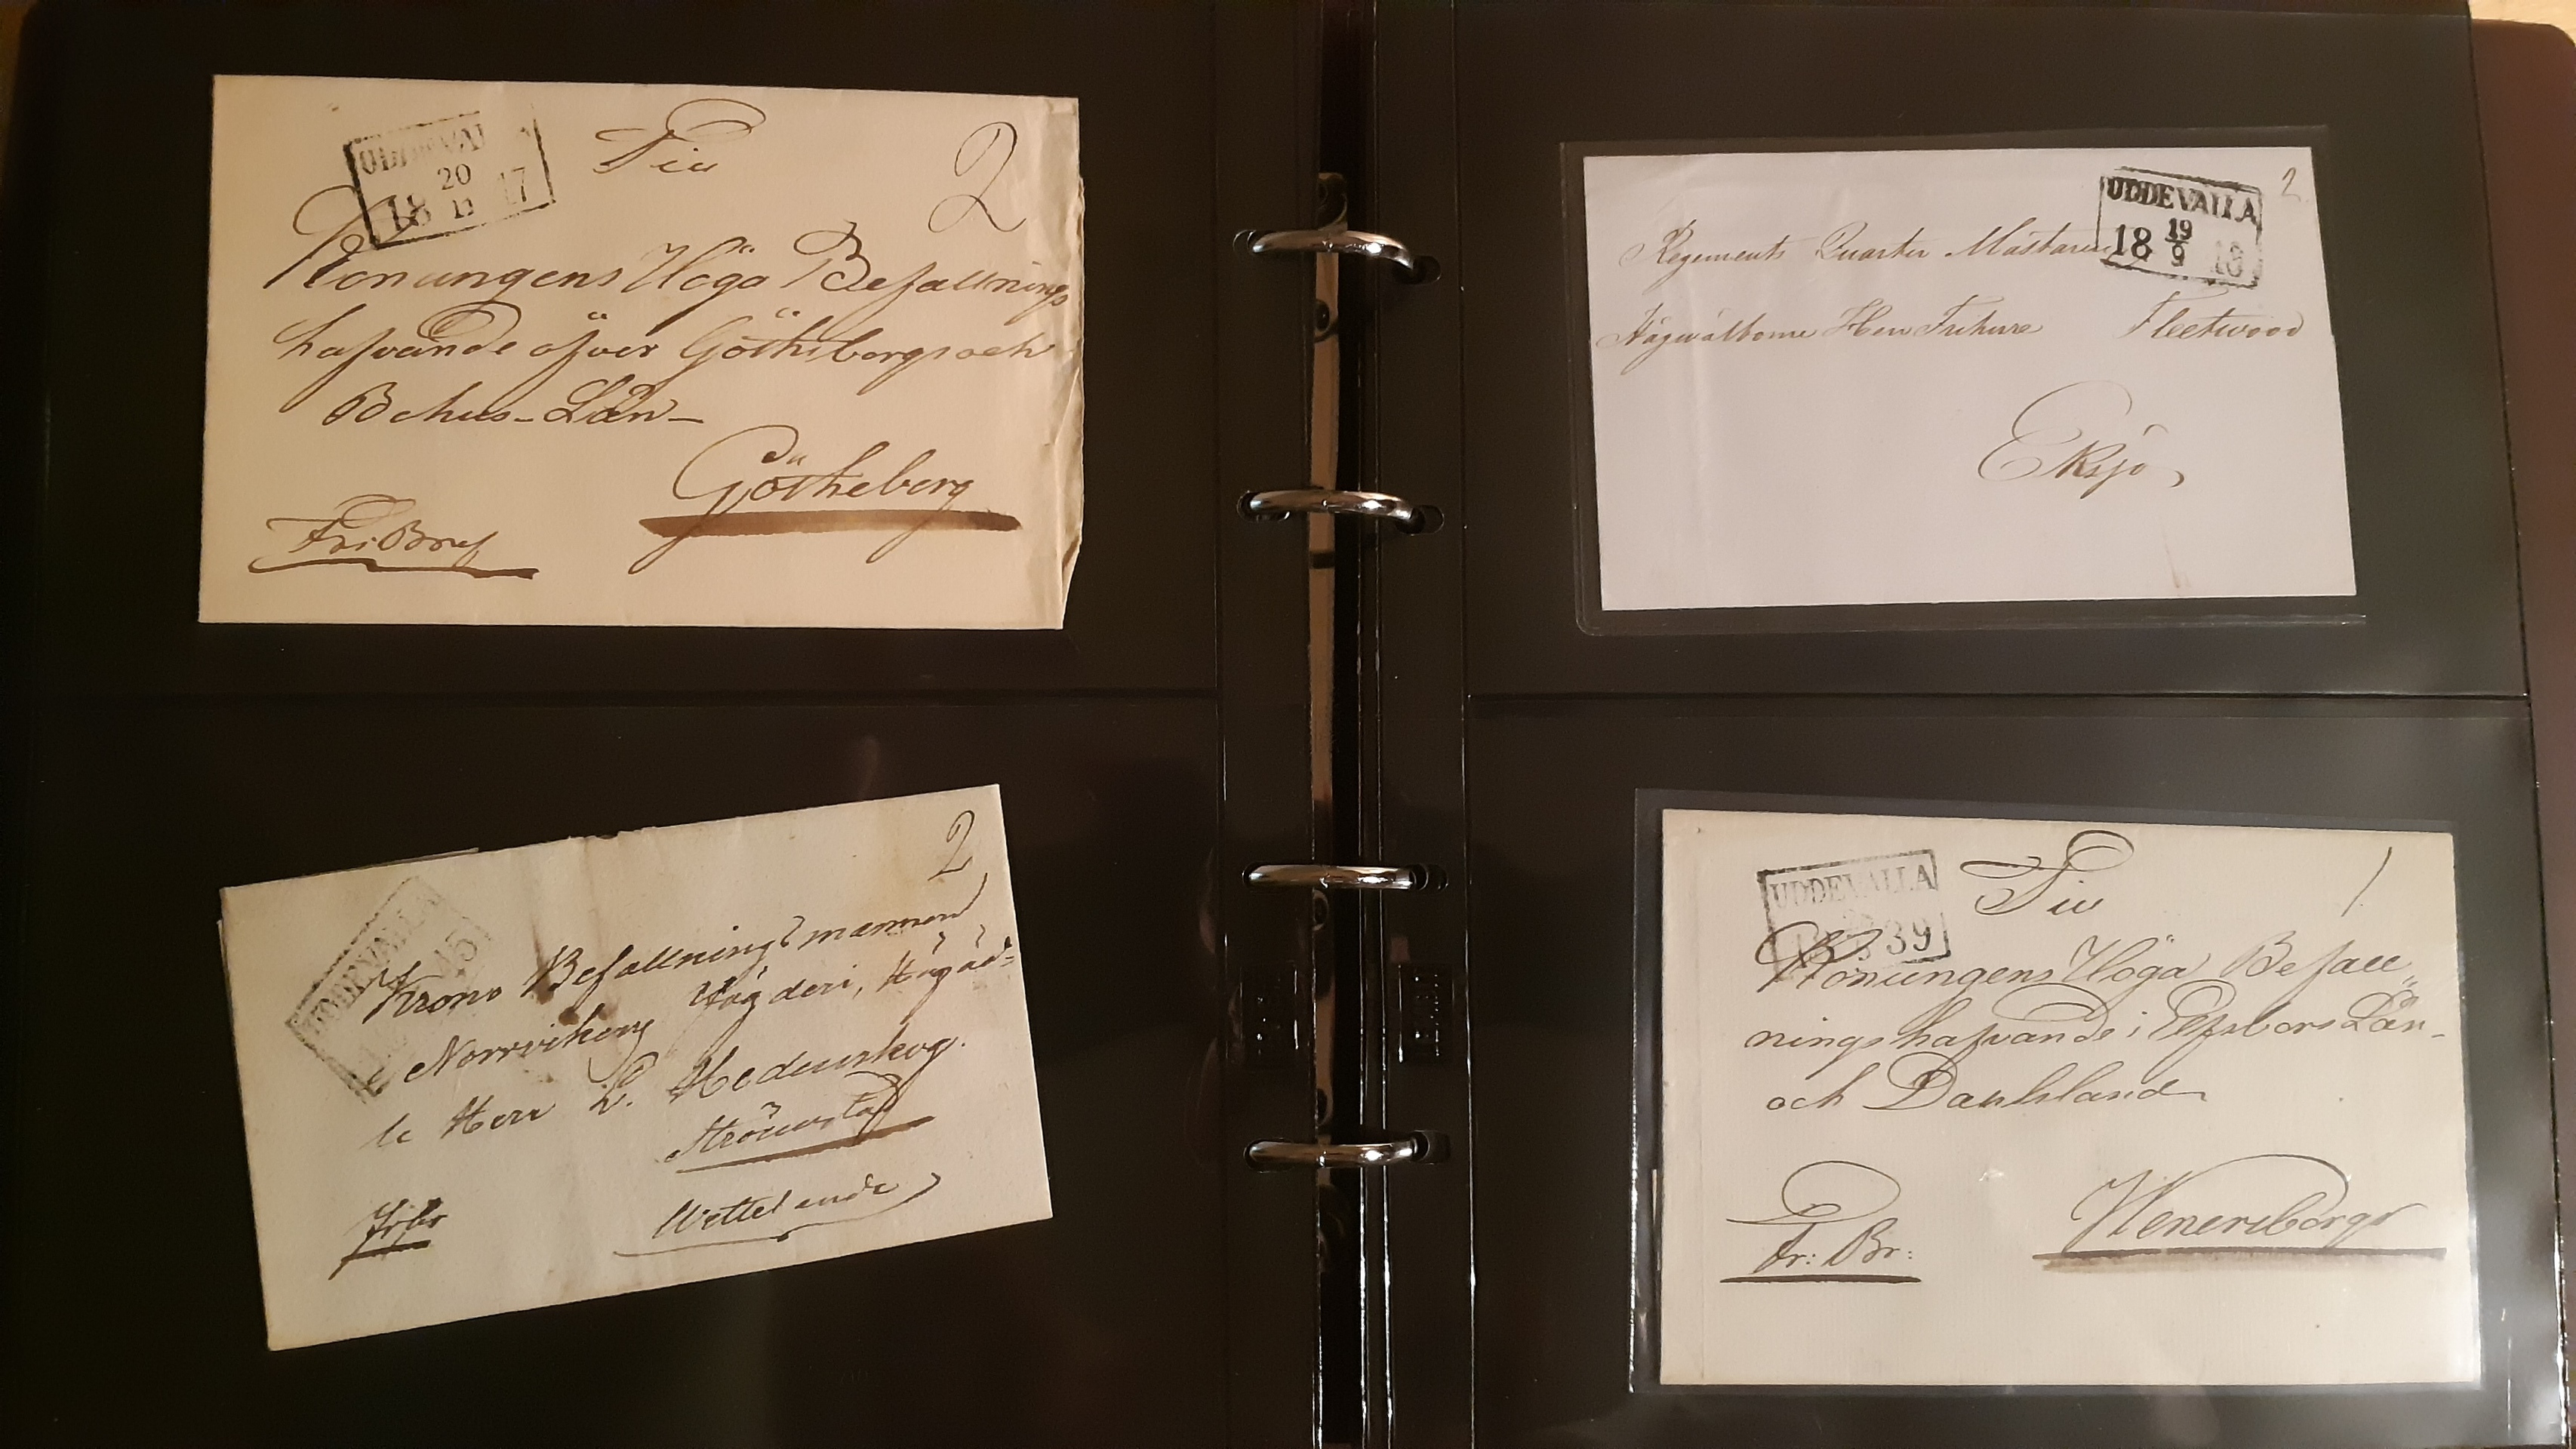 UDDEVAL
20
18 11 17
Till
2
Konungens Höga Befallnings
hafvande öfver Götheborgs och
Bohus-Län-
Götheborg
Fri Bref
UDDEVALLA
19
18 9
2
Regements Quarter Mästaren
Högwälborne Herr Friherre Fleetwood
Eksjö
UDDEVALLA
45
2
Krono Befallningsmannen
i Norrvikens
le Herr L. Hedenskog.
Strömstad
Frbr
UDDEVALLA
39
Till
1
Konungens Höga Befall"
ningshafvande i Elfsborgs Län-
och Dahlsland
Fr: Br:
Wenersborg